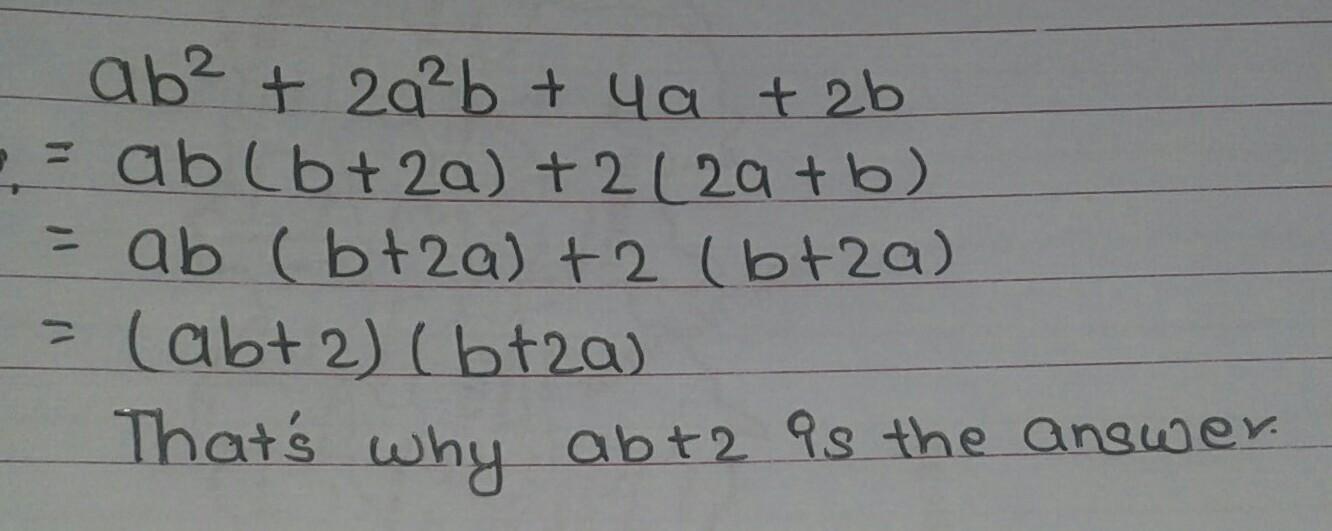 ab² + 2a²b + 4a + 2b
= ab(b+2a) + 2(2a+b)
= ab (b+2a) + 2 (b+2a)
= (ab+2)(b+2a)
That's why ab+2 is the answer.